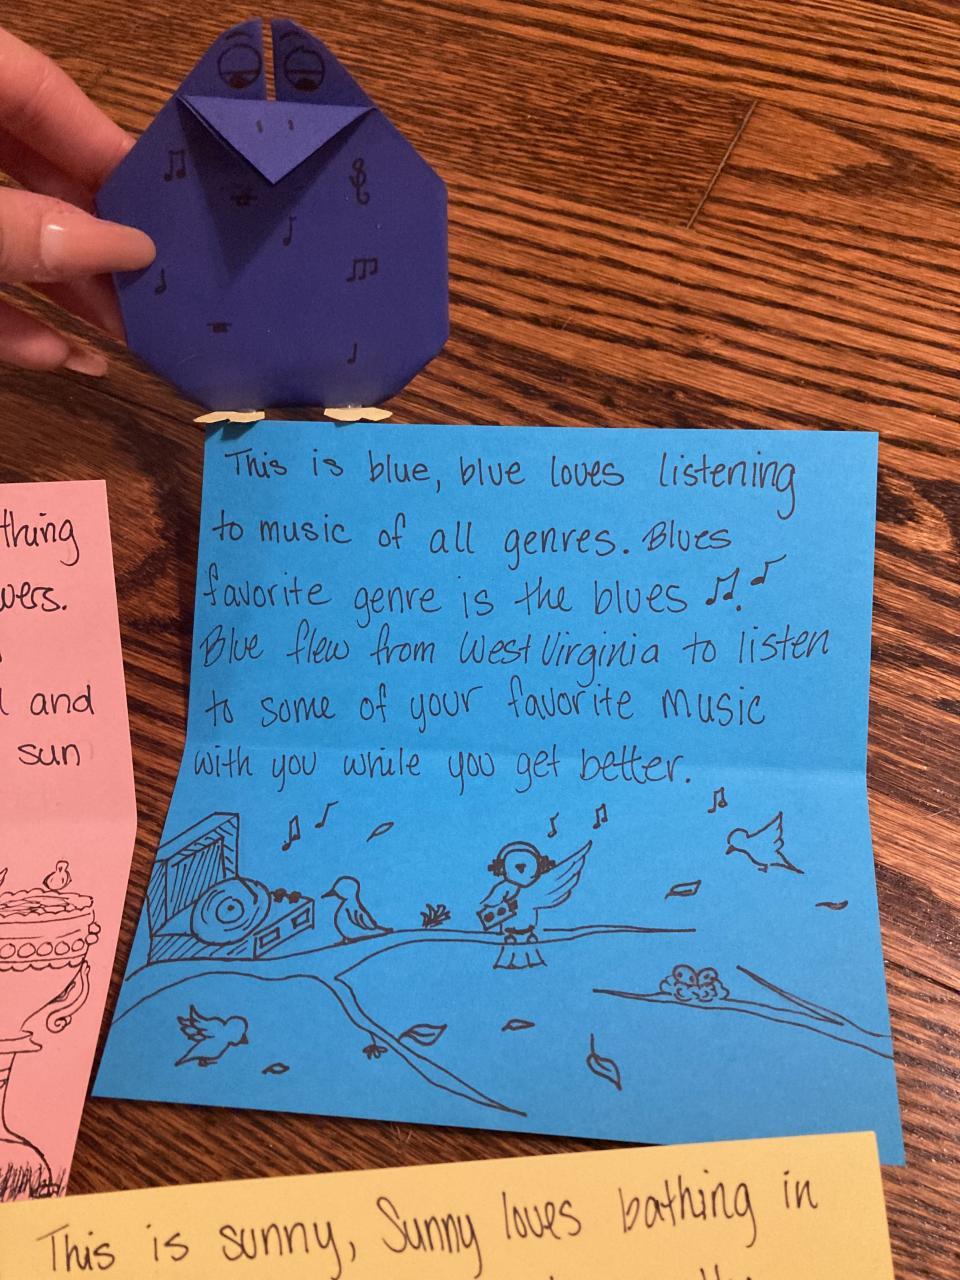 This is blue, blue loves listening
to music of all genres. Blues
favorite genre is the blues
Blue flew from West Virginia to listen
to some of your favorite music
with you while you get better.
thing
wers.
and
sun
This is sunny, Sunny loves bathing in